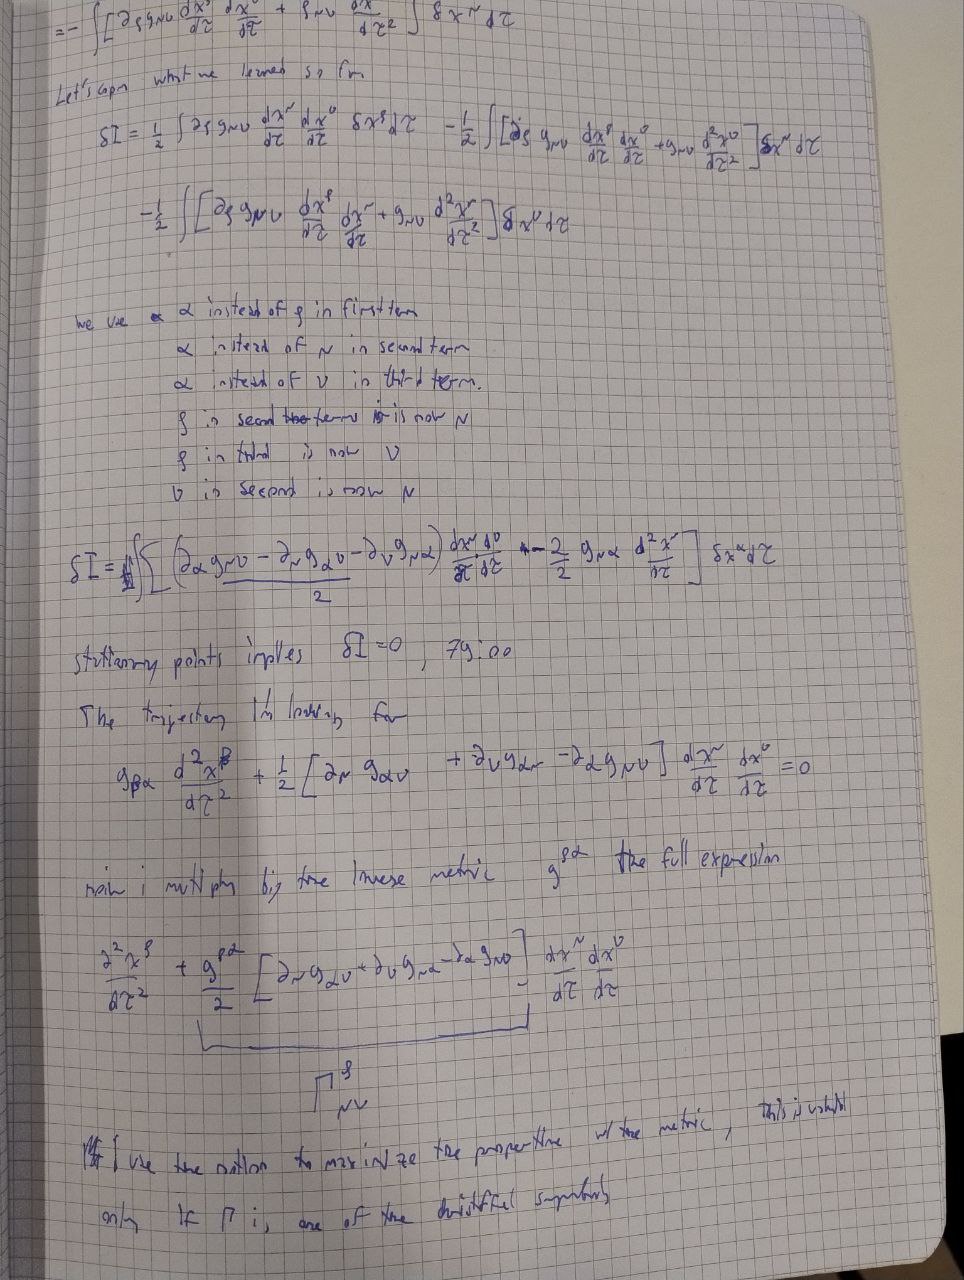 = - ∫ [ ∂ρ gμν dx^ρ/dτ dx^ν/dτ + gμν d²x^ν/dτ² ] δx^μ dτ
Let's copy what we learned so far
δI = 1/2 ∫ ∂ρ gμν dx^μ/dτ dx^ν/dτ δx^ρ dτ - 1/2 ∫ [ ∂ρ gμν dx^ρ/dτ dx^ν/dτ + gμν d²x^ν/dτ² ] δx^μ dτ
- 1/2 ∫ [ ∂ρ gμν dx^ρ/dτ dx^μ/dτ + gμν d²x^μ/dτ² ] δx^ν dτ
we use α instead of ρ in first term
α instead of μ in second term
α instead of ν in third term.
ρ in second term is now μ
ρ in third is now ν
ν in second is now μ
δI = ∫ [ (∂α gμν - ∂μ gαν - ∂ν gμα)/2 dx^μ/dτ dx^ν/dτ - 2/2 gμα d²x^μ/dτ² ] δx^α dτ
stationary points implies δI = 0, 79:00
The trajectory I'm looking for
gβα d²x^β/dτ² + 1/2 [ ∂μ gαν + ∂ν gαμ - ∂α gμν ] dx^μ/dτ dx^ν/dτ = 0
now i multiply by the inverse metric g^ρα the full expression
∂²x^ρ/dτ² + g^ρα/2 [ ∂μ gαν + ∂ν gμα - ∂α gμν ] dx^μ/dτ dx^ν/dτ
Γ^ρ μν
I use the notion to maximize the proper time w/ the metric, this is
only if Γ is one of the christoffel symbols